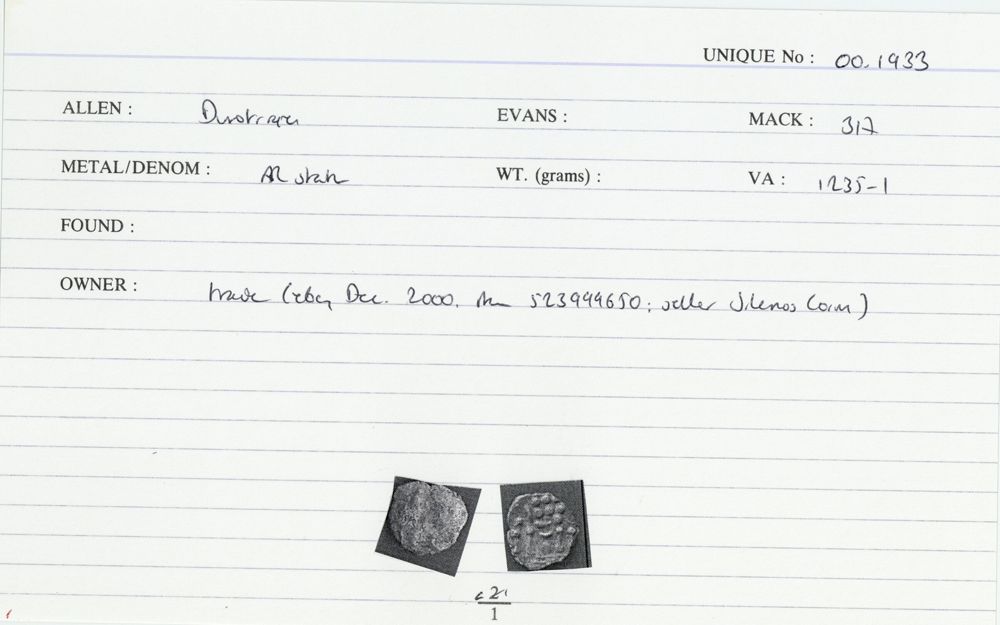 UNIQUE No : 00.1933
ALLEN : Durotriges EVANS : MACK : 317
METAL/DENOM : AR stater WT. (grams) : VA : 1235-1
FOUND :
OWNER : trade (ebay Dec. 2000. 523999650; seller Silenos Coins)
1